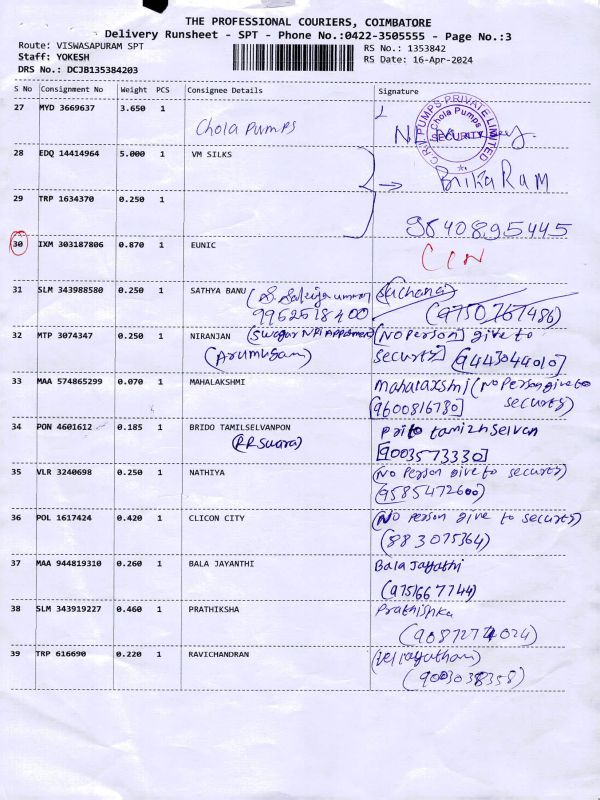 THE PROFESSIONAL COURIERS, COIMBATORE
Delivery Runsheet - SPT - Phone No.:0422-3505555 - Page No.:3
Route: VISWASAPURAM SPT
RS No.: 1353842
Staff: YOKESH
RS Date: 16-Apr-2024
DRS No.: DCJB135384203
S No Consignment No Weight PCS Consignee Details Signature
27 MYD 3669637 3.650 1
Chola Pumps
C.R.I. PUMPS PRIVATE LIMITED
Chola Pumps
SECURITY
28 EDQ 14414964 5.000 1 VM SILKS
RAM
29 TRP 1634370 0.250 1
9840895445
30 IXM 303187806 0.870 1 EUNIC
CCN
31 SLM 343988580 0.250 1 SATHYA BANU
9952518400 (9750767486)
32 MTP 3074347 0.250 1 NIRANJAN (No Person) give to
(Arumugam) security] [9443044010]
33 MAA 574865299 0.070 1 MAHALAKSHMI maharaxshi (No Person give to
[9600816730] security)
34 PON 4601612 0.185 1 BRIDO TAMILSELVANPON Prito tamizhselvan
[9003573330]
35 VLR 3240698 0.250 1 NATHIYA (No Person give to security)
(9585472600)
36 POL 1617424 0.420 1 CLICON CITY (No Person give to security)
(883075764)
37 MAA 944819310 0.260 1 BALA JAYANTHI Bala Jayathi
(9751667744)
38 SLM 343919227 0.460 1 PRATHIKSHA Prathishka
(9087274024)
39 TRP 616690 0.220 1 RAVICHANDRAN (velrayatham)
(9003038358)